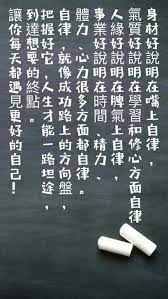 身材好說明在嘴上自律
氣質好說明在學習和修心方面自律
人緣好說明在脾氣上自律，
事業好說明在時間、精力、
體力、心力很多方面都自律。
自律，就像成功路上的方向盤，
把握好它，人生才能一路坦途，
到達想要的終點。
讓你每天都遇見更好的自己！